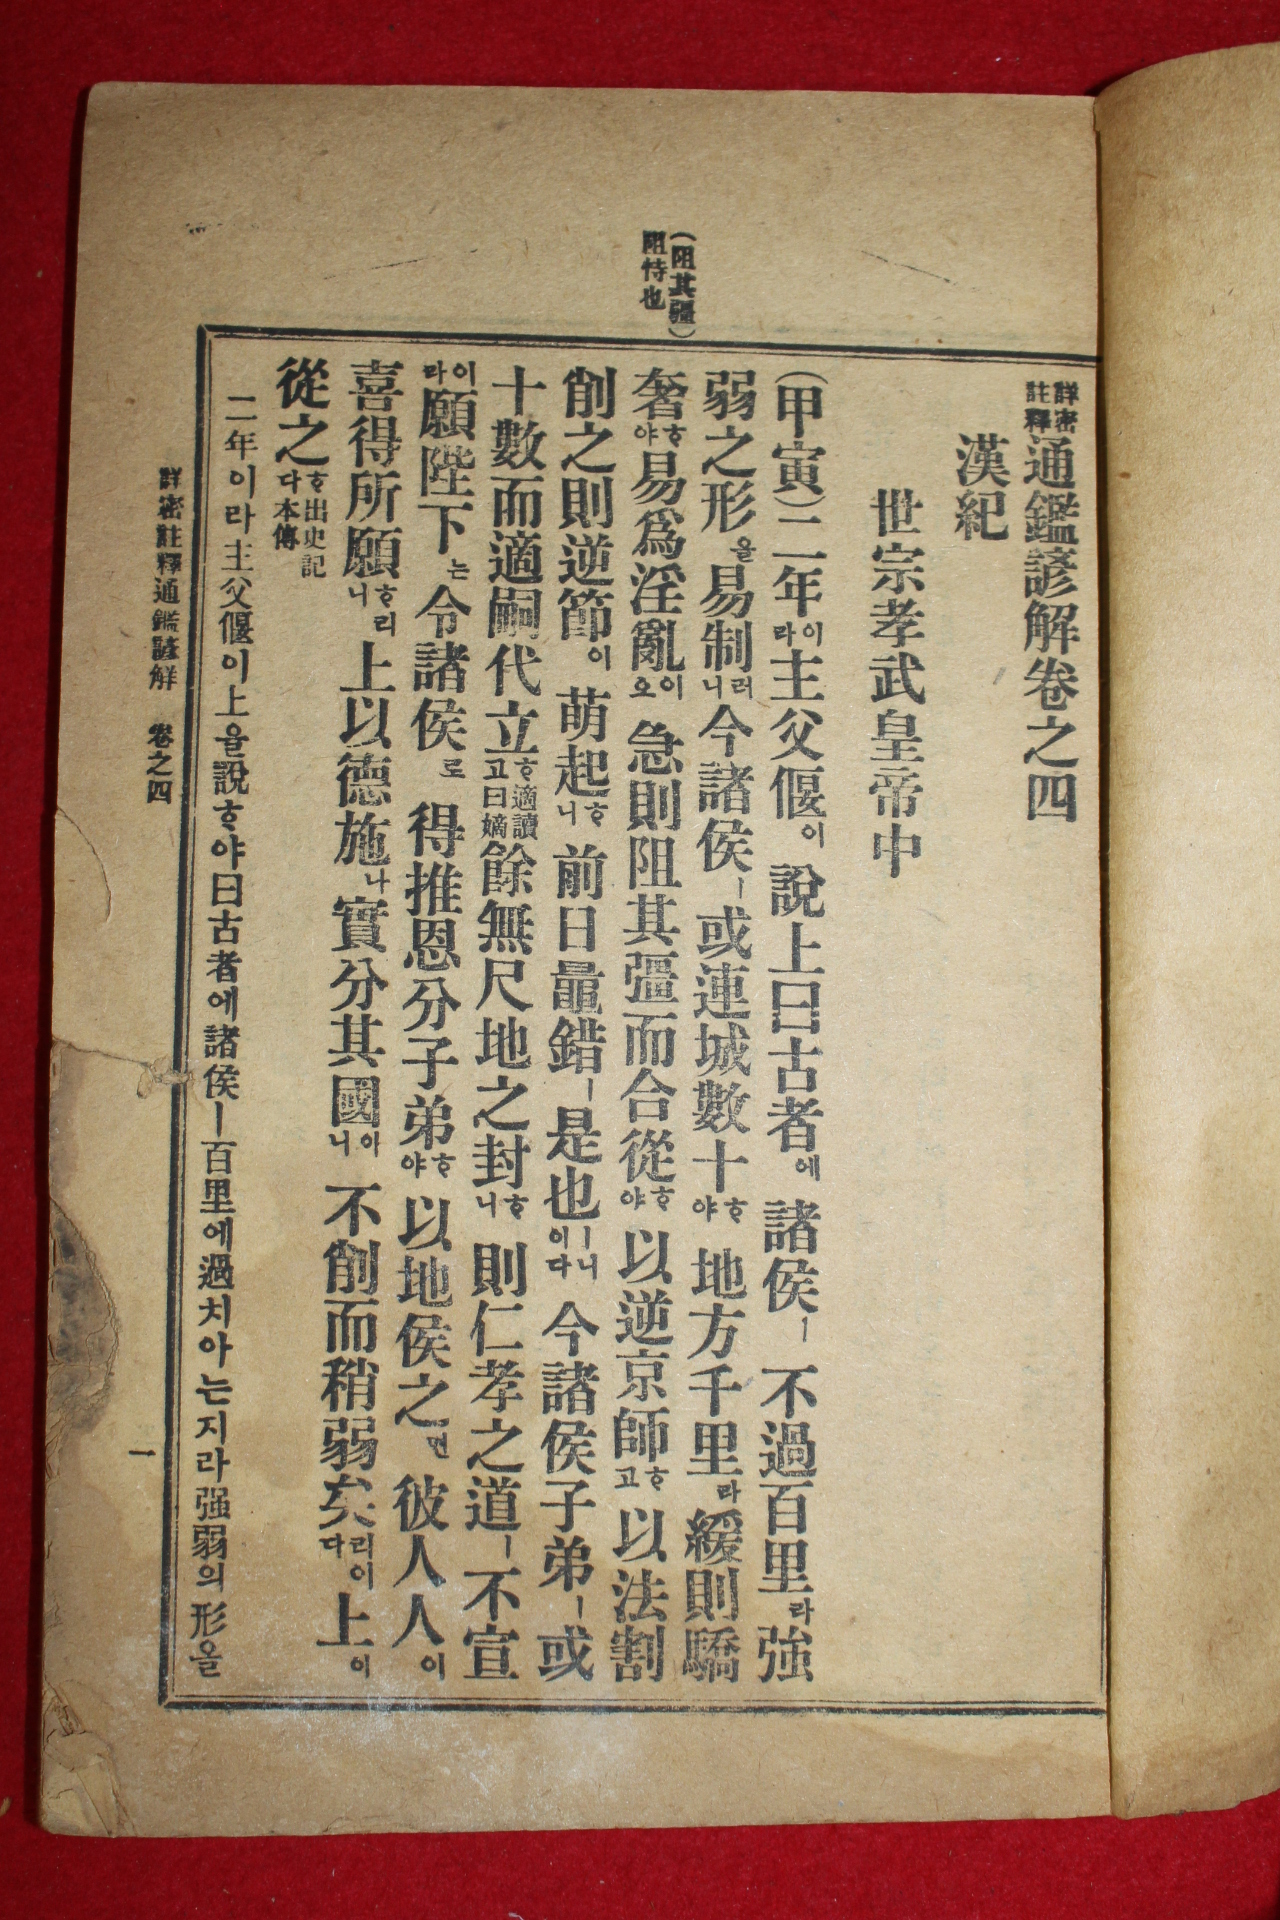 (阻其疆)
阻恃也
詳密註釋通鑑諺解卷之四
漢紀
世宗孝武皇帝中
(甲寅)二年이라主父偃이說上曰古者에諸侯ㅣ不過百里라強
弱之形을易制러니今諸侯ㅣ或連城數十ᄒᆞ야地方千里라緩則驕
奢ᄒᆞ야易爲淫亂이오急則阻其疆而合從ᄒᆞ야以逆京師ᄒᆞ고以法割
削之則逆節이萌起ᄒᆞ니前日鼂錯ㅣ是也ㅣ니이다今諸侯子弟ㅣ或
十數而適嗣代立ᄒᆞ고適讀曰嫡餘無尺地之封ᄒᆞ니則仁孝之道ㅣ不宣
이라願陛下는令諸侯로得推恩分子弟ᄒᆞ야以地侯之면彼人人이
喜得所願ᄒᆞ리니上以德施나實分其國이니不削而稍弱矣리이다上이
從之ᄒᆞ다出史記本傳
二年이라主父偃이上을說ᄒᆞ야曰古者에諸侯ㅣ百里에過치아는지라强弱의形을
詳密註釋通鑑諺解 卷之四 一